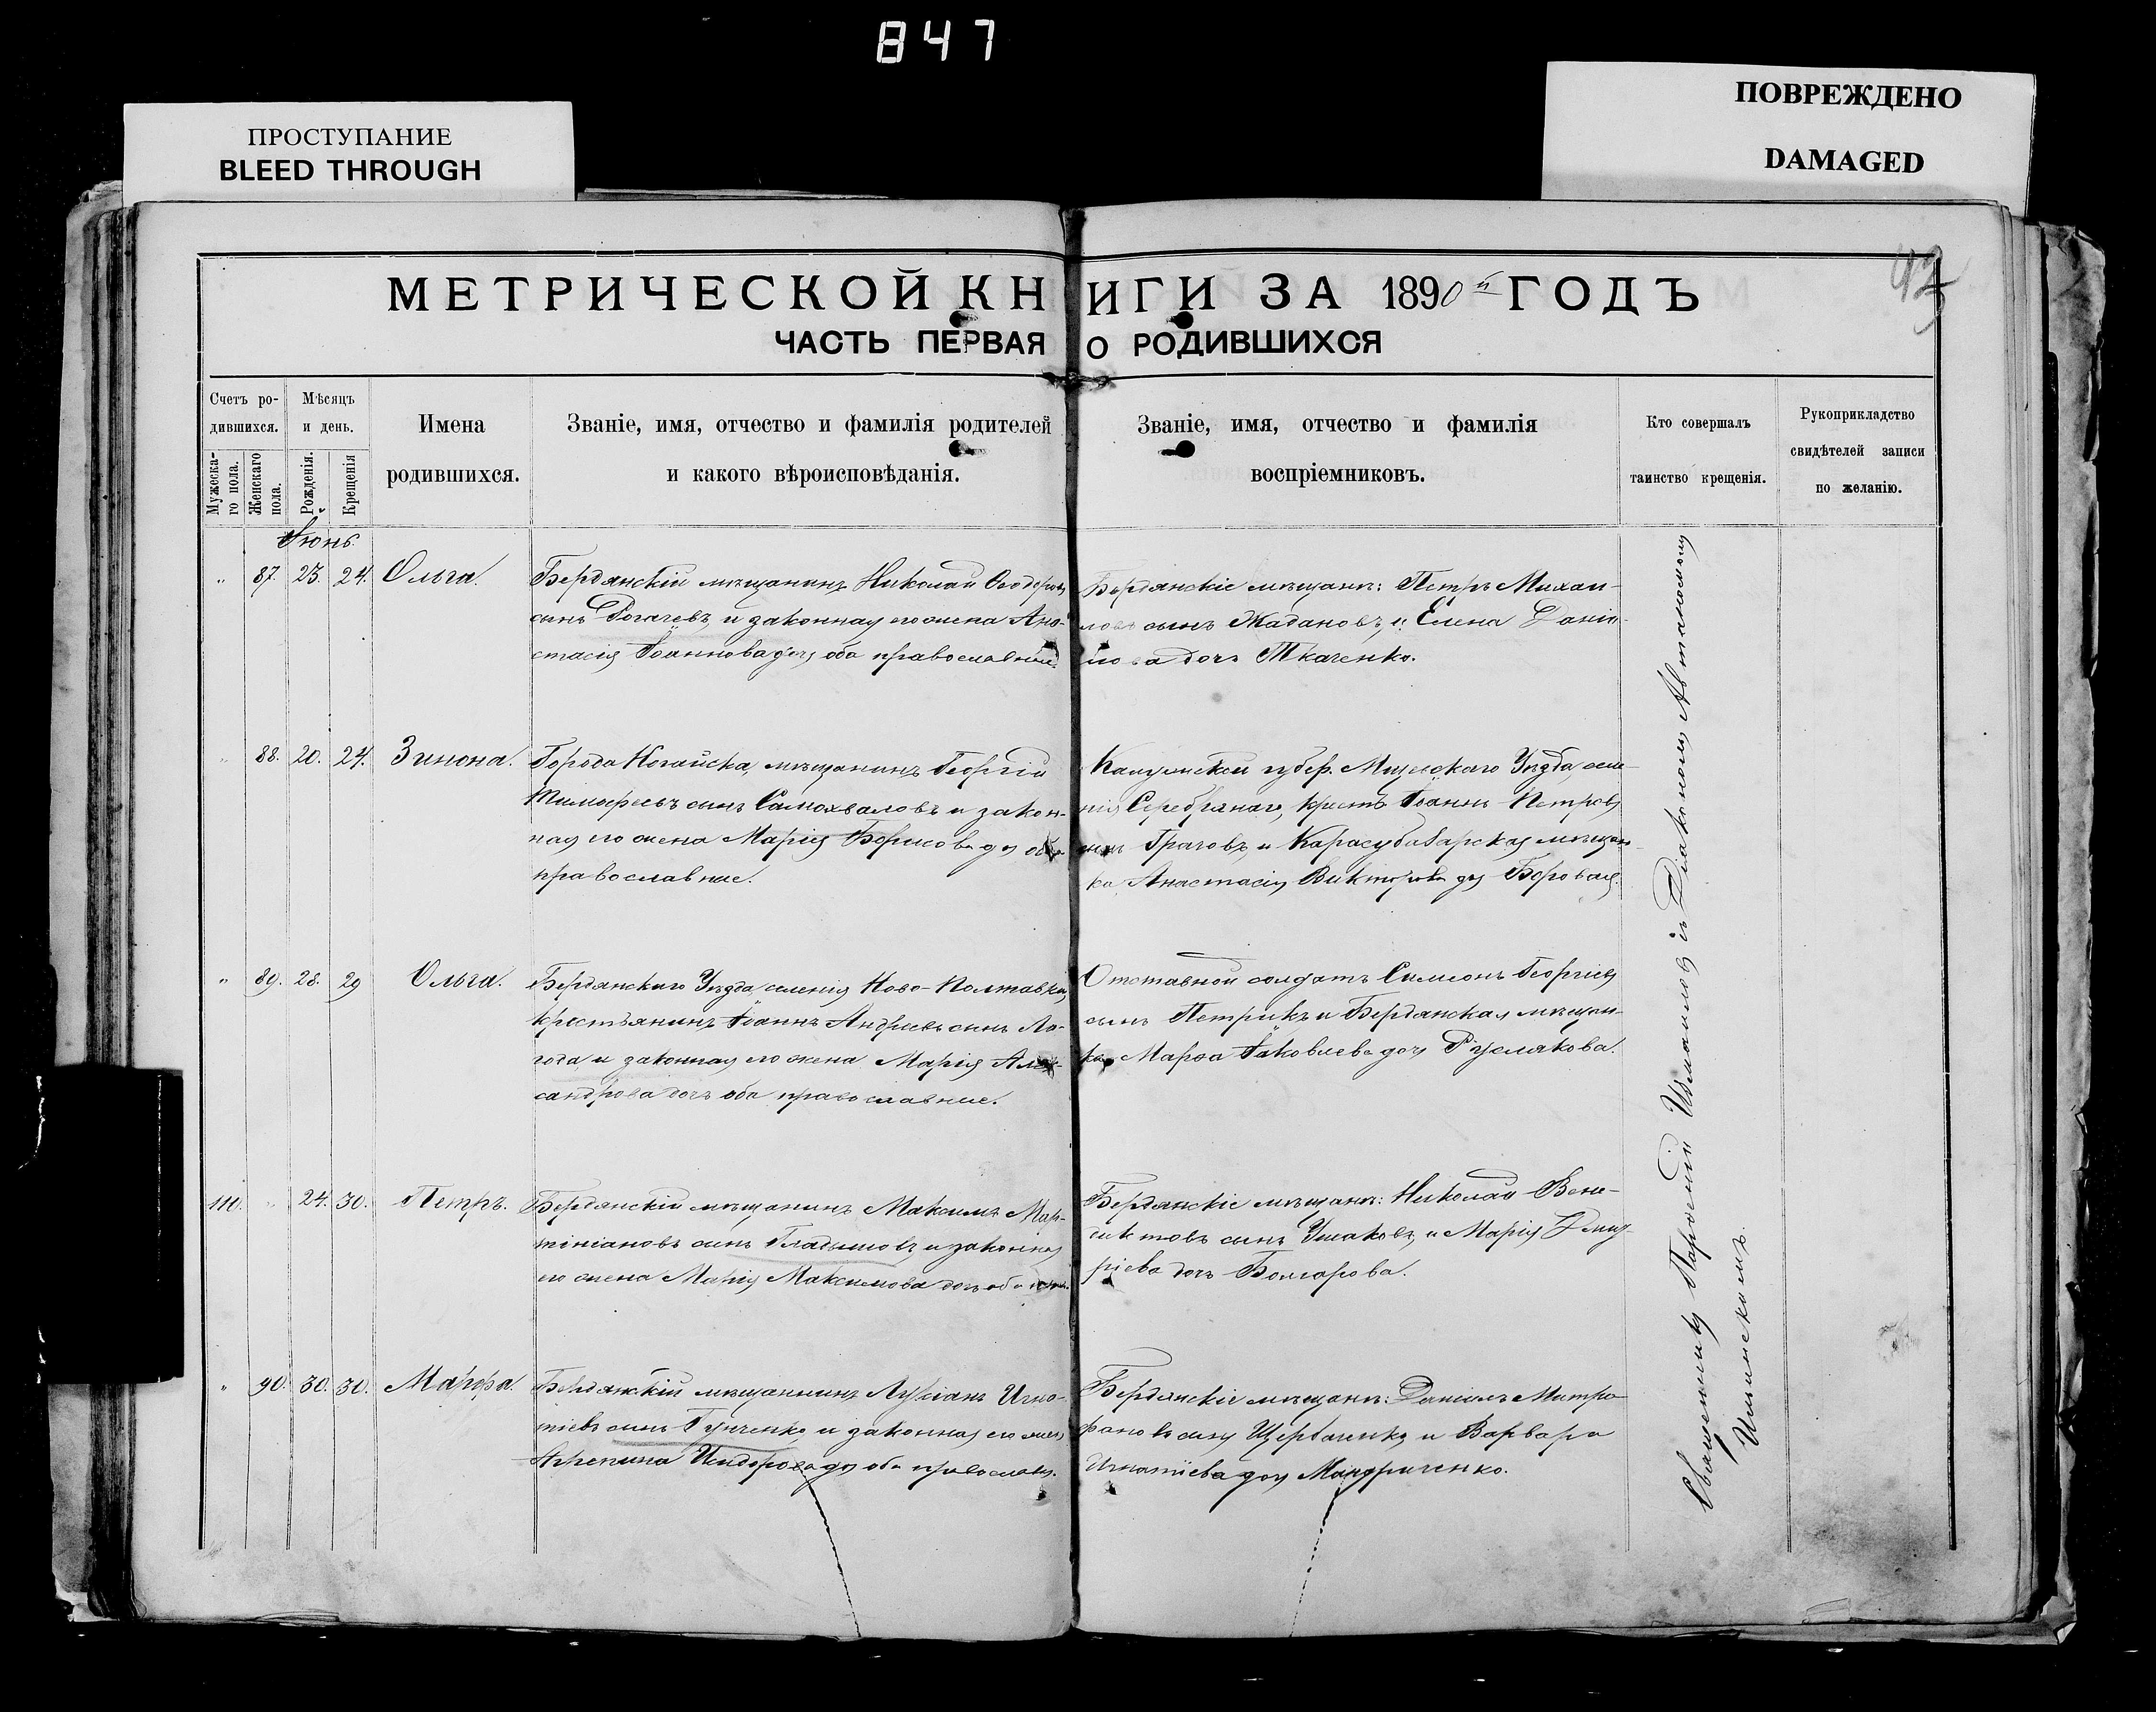 847
ПРОСТУПАНИЕ
BLEED THROUGH
ПОВРЕЖДЕНО
DAMAGED
МЕТРИЧЕСКОЙ КНИГИ ЗА 1890й ГОДЪ
ЧАСТЬ ПЕРВАЯ О РОДИВШИХСЯ
Счетъ ро-
дившихся.
Мужеска-
го пола.
Женскаго
пола.
Мѣсяцъ
и день.
Рожденія.
Крещенія
Имена
родившихся.
Званіе, имя, отчество и фамилія родителей
и какого вѣроисповѣданія.
Званіе, имя, отчество и фамилія
воспріемниковъ.
Кто совершалъ
таинство крещенія.
Рукоприкладство
свидѣтелей записи
по желанію.
Іюнь
„ 87. 23. 24. Ольга.
Бердянскій мѣщанинъ Николай Ѳеодоровъ
сынъ Рогачевъ и законная его жена Ана-
стасія Іоаннова дочь оба православные
Бердянскіе мѣщане: Петръ Михаи-
ловъ сынъ Жадановъ, и Елена Даніи-
лова дочь Ткаченко.
„ 88. 20. 24. Зинона.
Города Ногайска, мѣщанинъ Георгій
Тимофеевъ сынъ Самохваловъ и закон-
ная его жена Марія Борисова дочь оба
православные.
губер. Уѣзда, селе-
нія Серебрянаго, крест. Іоаннъ Петровъ
сынъ Грачовъ, и Карасубазарская мѣщан-
ка Анастасія Викторова доч Боровая.
„ 89. 28. 29 Ольга.
Бердянскаго Уѣзда, селенія Ново-Полтавки,
крестьянинъ Іоаннъ Андреевъ сынъ Ла-
года, и законная его жена Марія Алек-
сандрова дочь оба православные.
Отставной солдатъ Симеонъ Георгіевъ
сынъ Петрикъ и Бердянская мѣщан-
ка Марѳа Іаковлева дочь Руслякова.
110. „ 24. 30. Петръ.
Бердянскій мѣщанинъ Максимъ Мар-
тиніановъ сынъ Гладышовъ, и законная
его жена Марія Максимова дочь оба
Бердянскіе мѣщане: Николай Вене-
диктовъ сынъ Ушаковъ, и Марія Дмит-
ріева дочь Болгарова.
„ 90. 30. 30. Марфа.
Бердянскій мѣщанинъ Лукіанъ Игна-
тіевъ сынъ и законная его жена
Агрепина Исидорова доч оба православн.
Бердянскіе мѣщане: Даніилъ Митро-
фановъ сынъ Щербаченко, и Варвара
Игнатіева доч Мандриченко.
Священникъ Парѳеній Измаиловъ съ Діакономъ Автономомъ
42